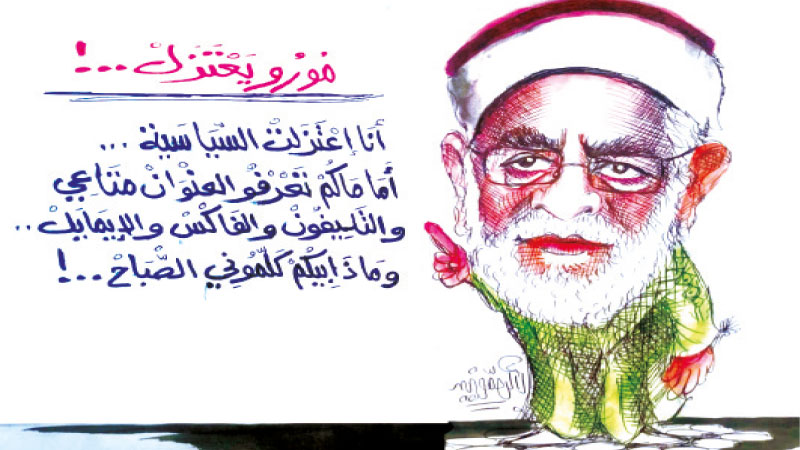 مورو يَعْتَزِلْ...!
أنا إعْتَزَلتْ السِّيَاسَية ...
أمَا مَاكُمْ تَعْرْفُو العِنْوَانْ مْتَاعِي
والتَلِيفُونْ والفَاكْسْ والإيمَايلْ ..
ومَاذَابِيكُمْ كَلّمُونِي الصّبَاحْ...!